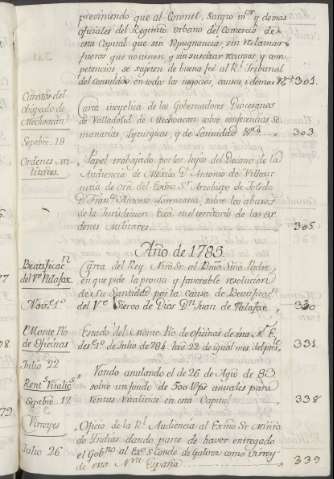 previniendo que al Coronel, Sargto mor y demas
oficiales del Regimto Urbano del Comercio de
esta Capital que sin repugnancia, sin reclamar
fueros que no tienen, y sin suscitar recursos y com-
petencias se sujeten de buena fee al Rl Tribunal
del Consulado en todos los negocios, causas 301.
Curatos del
Obispado de
Mechoacán
Carta inrefleia de los Gobernadores Diocesanos
de Valladolid de Mechoacan sobre conferencias se-
manarias, Liturgicas, y de Sanidad 303
Sepbre. 18
Ordenes mi-
litares.
Papel trabajado por los hijos del Decano de la
Audiencia de Mexico Dn Antonio de Villaur-
rutia de ord. del Exmo Sr Arzobispo de Toledo
Dn Franco Antonio Lorenzana, sobre los abusos
de la Jurisdiccion ecca en el territorio de las or-
denes militares. 305
Año de 1785.
Beatificacn
del Ve Palafox
Carta del Rey Nro Sr al Bmo Niño Padre,
en que pide la pronta y favorable resolucion
de Su Santidad por la Causa de Beatificacn
Novre 1º
del Ve Siervo de Dios Dn Juan de Palafox 330
El Monte Pio
de Oficinas
Estado del Monte Pio de Oficinas de
des 1º de Julio de 784 hta 22 de igual mes del 331
Julio 22
Rents Vitalics
Vando anulando el de 26 de Agto de 83
sobre un fondo de 500 ps anuales para
Sepbre. 12
rentas Vitalicias en esta Capital 338
Virreyes
Oficio de la Rl Audiencia al Exmo Sr Minro
de Indias dando parte de haver entregado
Julio 26
el Gobno al Exmo Sr Conde de Galvez como Virrey
de esta Nva España 339